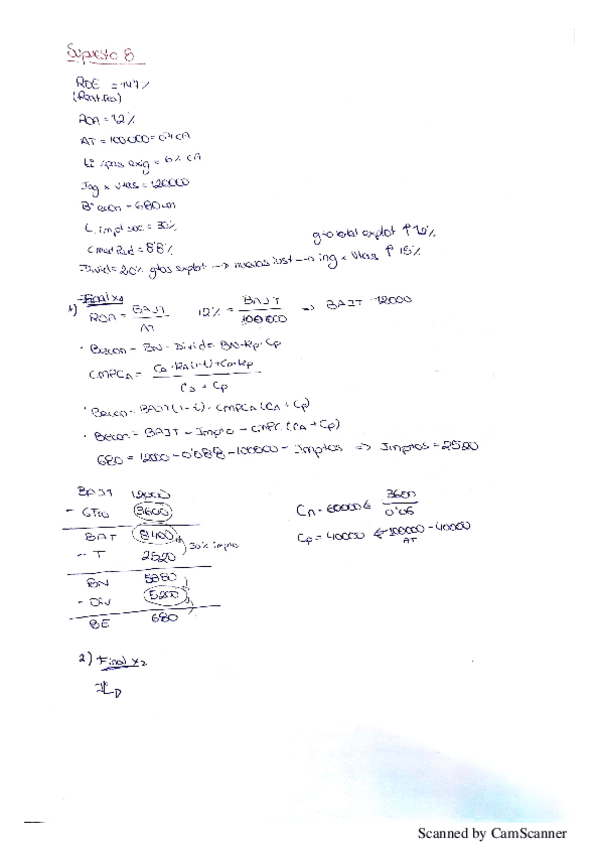 Supuesto 8
ROE = 14'7%
(Rent.fra)
ROA = 12%
AT = 100.000 = CP+CA
ti /pas exig = 6% CA
Ing x vtas = 120000
Bº econ = 680 um
t. impt soc = 30%
gto total explot ↑ %
C med Pond = 8'8%
Divid = 20% gtos explot → nuevas inst → ing x vtas ↑ 15%
Final x1
1) ROA = BAIT / AT 12% = BAIT / 100000 ⇒ BAIT = 12000
· Becon = BN - Divid = BN - Kp · Cp
CMPCA = CA · KA(1-t) + Cp · Kp / CA + Cp
· Becon = BAIT(1-t) - CMPCA (CA + Cp)
· Becon = BAIT - Impto - CMPC (CA + Cp)
680 = 12000 - 0'088 - 100000 - Imptos ⇒ Imptos = 2520
BAIT 12000
- GTºˢ 3600
BAT 8400
- T 2520
30% impto
BN 5880
- Div 5200
BE 680
CA = 60000 ← 3600 / 0'06
Cp = 40000 ← 100000 - 40000
AT
2) Final x2